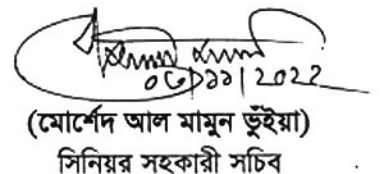 ০৩/১১/2022
(মোর্শেদ আল মামুন ভুঁইয়া)
সিনিয়র সহকারী সচিব